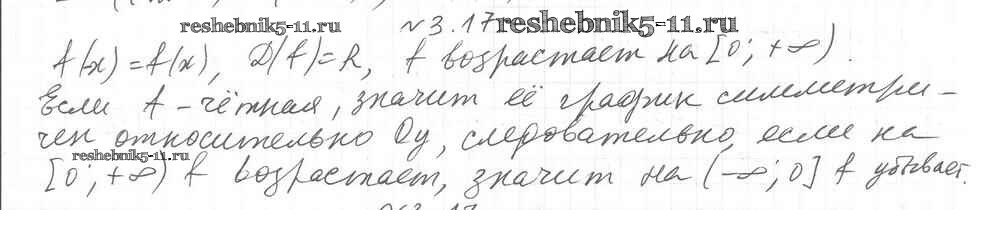 reshebnik5-11.ru
№3.17 reshebnik5-11.ru
f(-x)=f(x), D(f)=R, f возрастает на [0;+∞).
Если f - чётная, значит её график симметри-
чен относительно Oy, следовательно, если на
reshebnik5-11.ru
[0;+∞) f возрастает, значит на (-∞;0] f убывает.